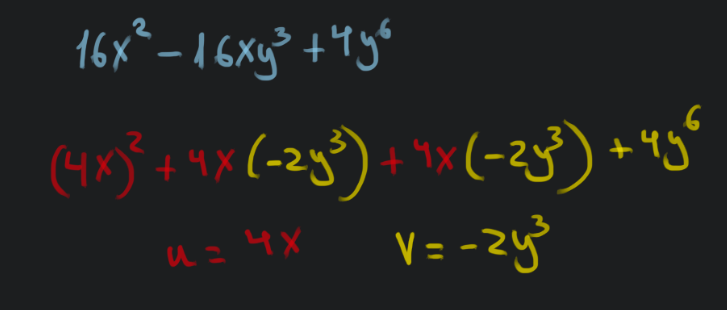 16x² - 16xy³ + 4y⁶
(4x)² + 4x(-2y³) + 4x(-2y³) + 4y⁶
u = 4x v = -2y³